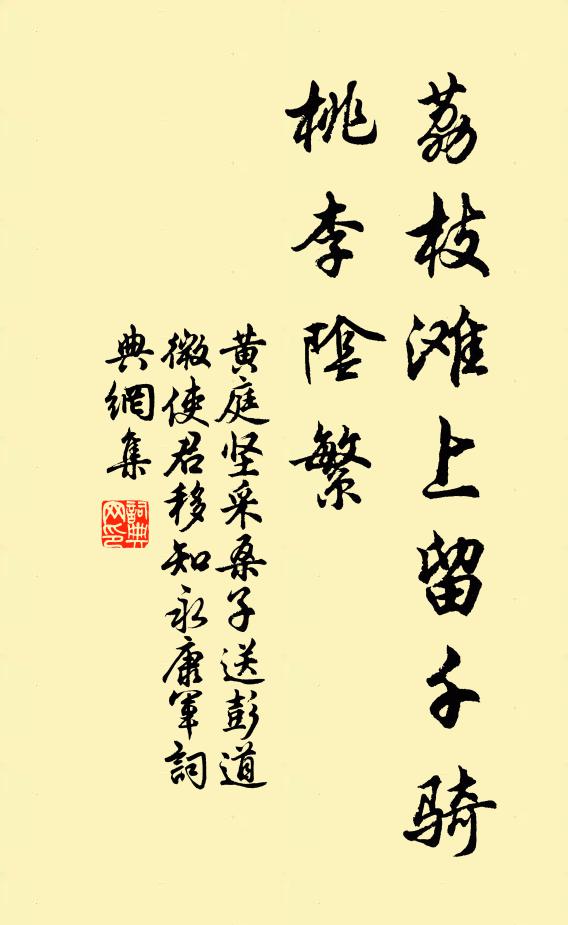 荔枝滩上留千骑
桃李陰繁
黄庭坚采桑子送彭道
微使君移知永康軍詞
典網集
詞典
网印